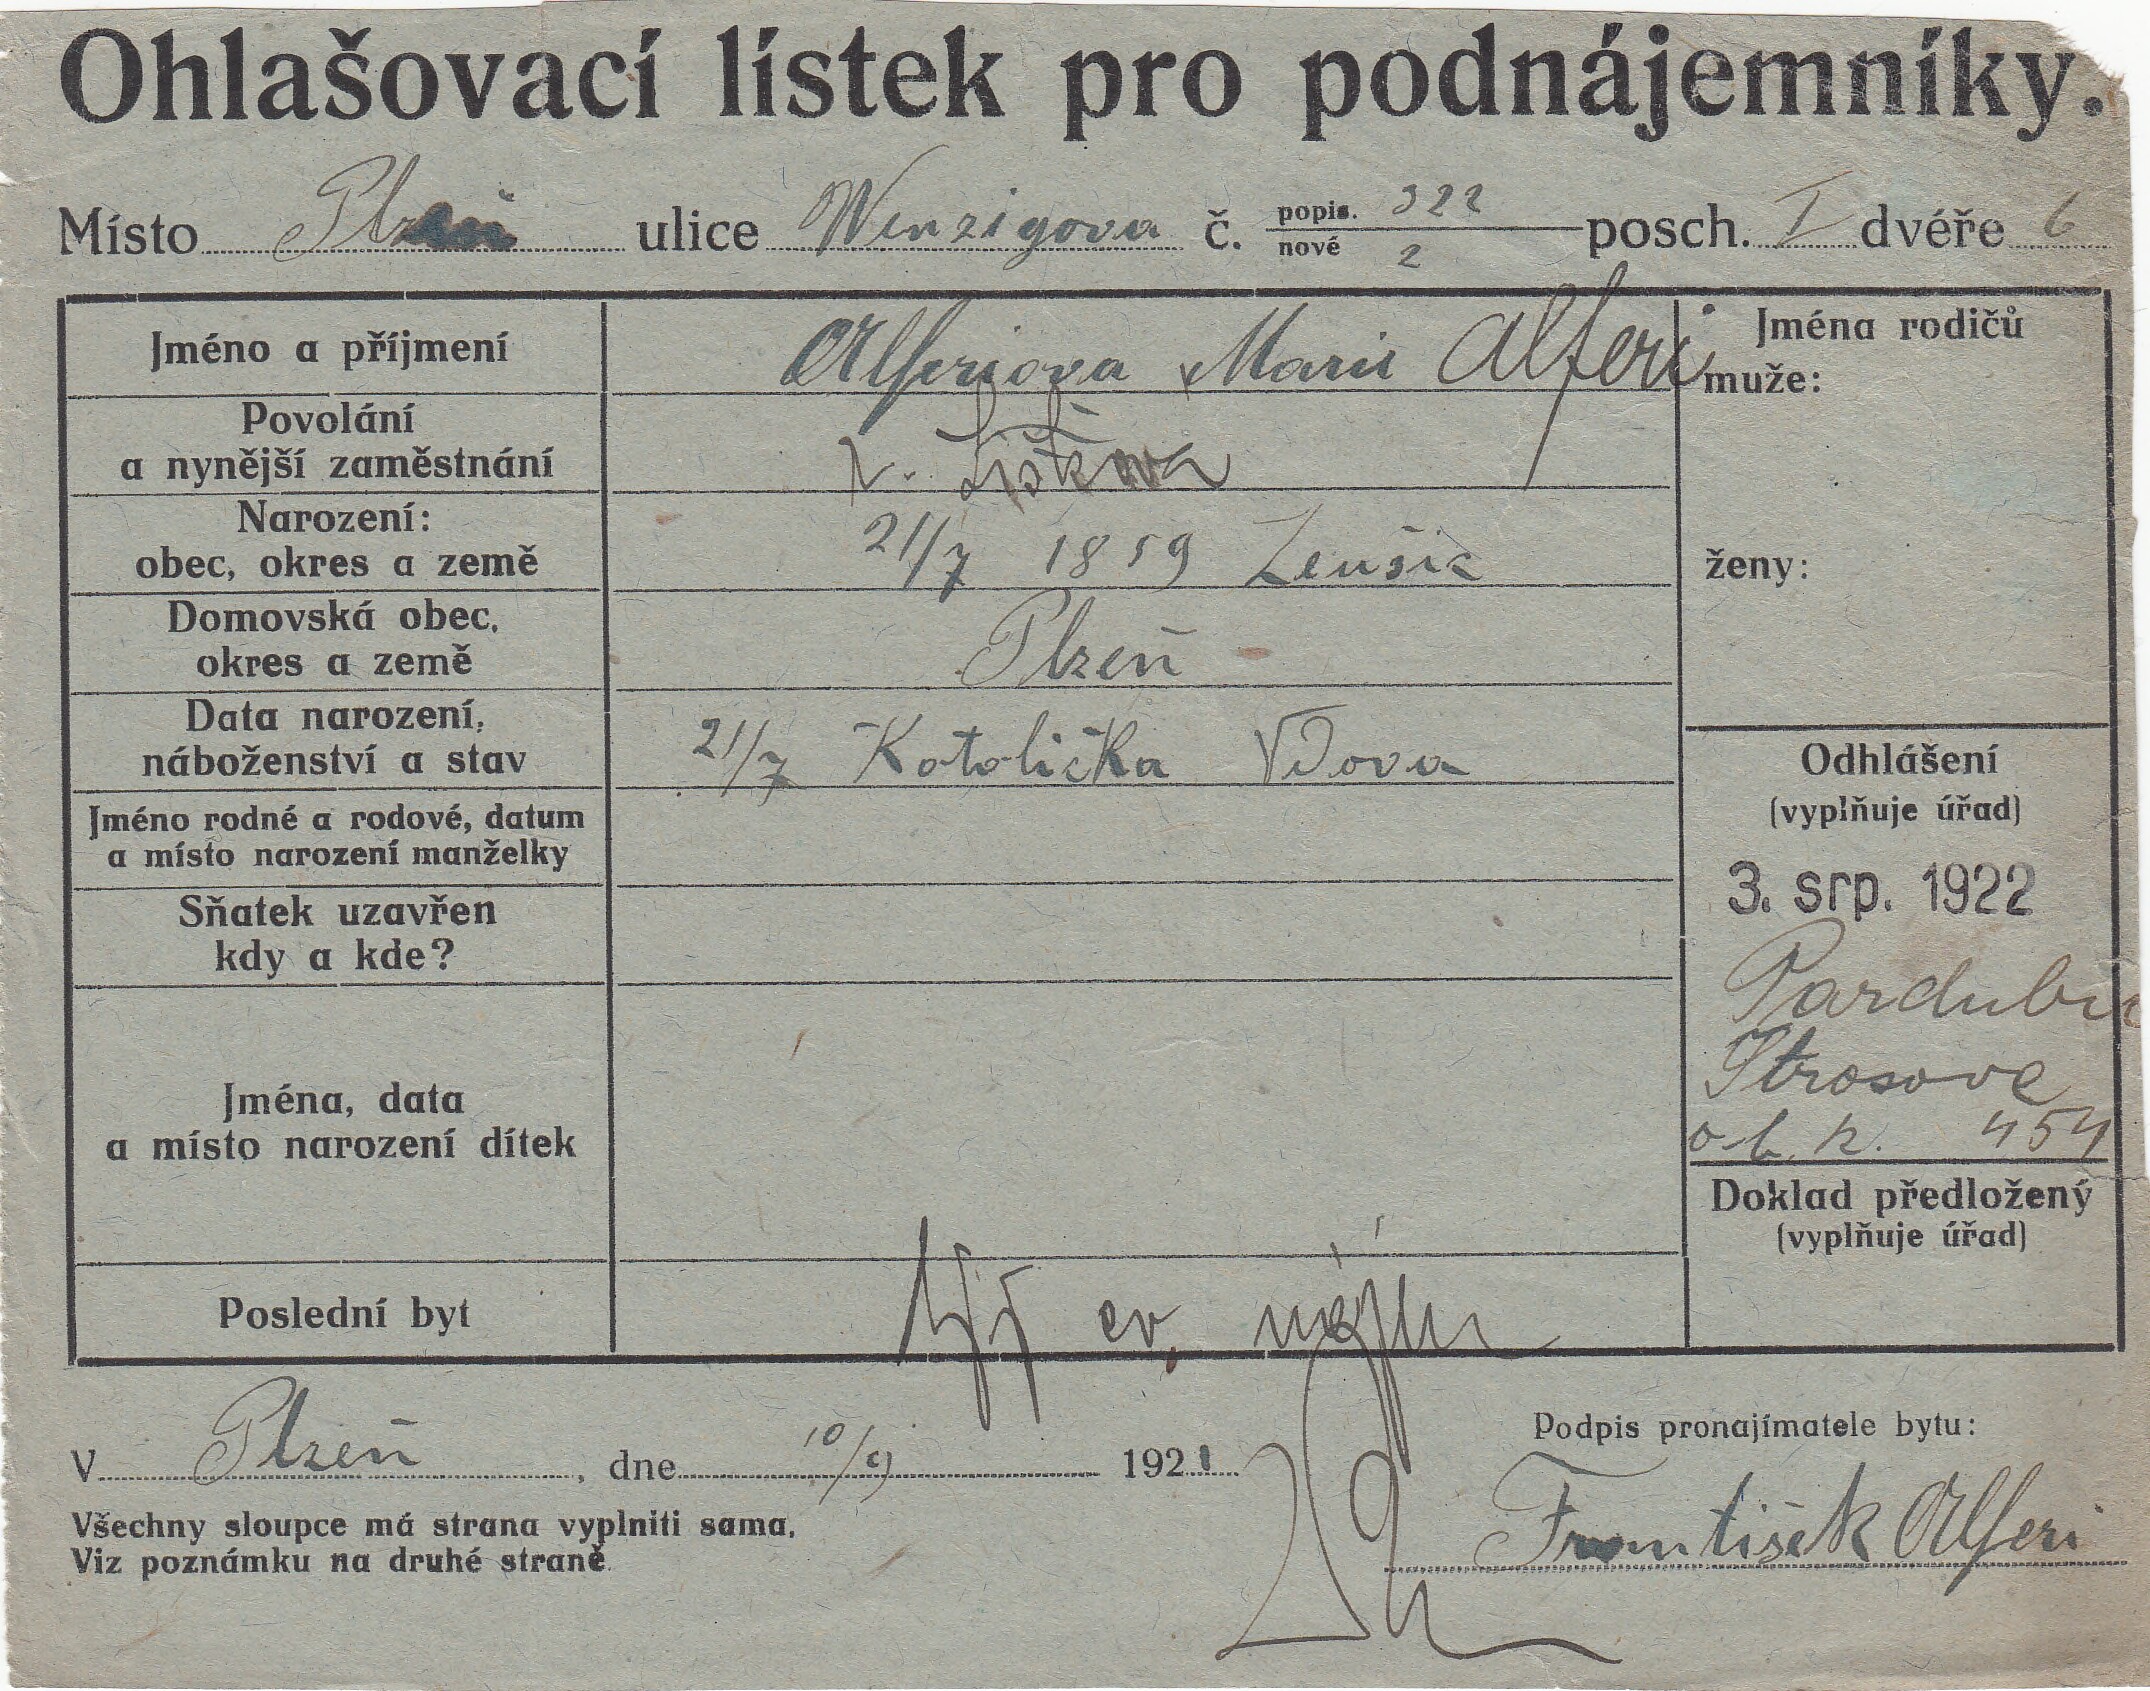 Ohlašovací lístek pro podnájemníky.
Místo Plzeň ulice Wenzigova č. popis. 322 nové 2 posch. I dvéře 6
Jméno a příjmení
Alferiova Marie Alferi
Povolání
a nynější zaměstnání
r. Lišková
Narození:
obec, okres a země
21/7 1859
Domovská obec,
okres a země
Plzeň
Data narození,
náboženství a stav
21/7 Katolička Vdova
Jméno rodné a rodové, datum
a místo narození manželky
Sňatek uzavřen
kdy a kde?
Jména, data
a místo narození dítek
Poslední byt
Jména rodičů
muže:
ženy:
Odhlášení
(vyplňuje úřad)
3. srp. 1922
Pardubic
Strosova
454
Doklad předložený
(vyplňuje úřad)
V Plzeň, dne 10/9 1921
Podpis pronajímatele bytu:
František Alferi
Všechny sloupce má strana vyplniti sama.
Viz poznámku na druhé straně.